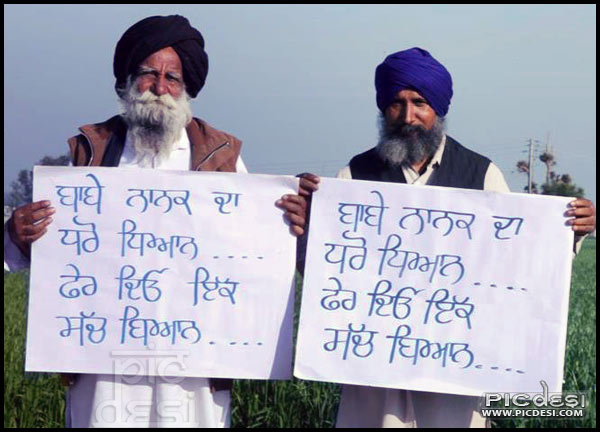 ਬਾਬੇ ਨਾਨਕ ਦਾ
ਧਰੋ ਧਿਆਨ ....
ਫੇਰ ਦਿਓ ਇੱਕ
ਸੱਚ ਬਿਆਨ ....
ਬਾਬੇ ਨਾਨਕ ਦਾ
ਧਰੋ ਧਿਆਨ ....
ਫੇਰ ਦਿਓ ਇੱਕ
ਸੱਚ ਬਿਆਨ ....
PiC desi
PiCdesi
WWW.PICDESI.COM